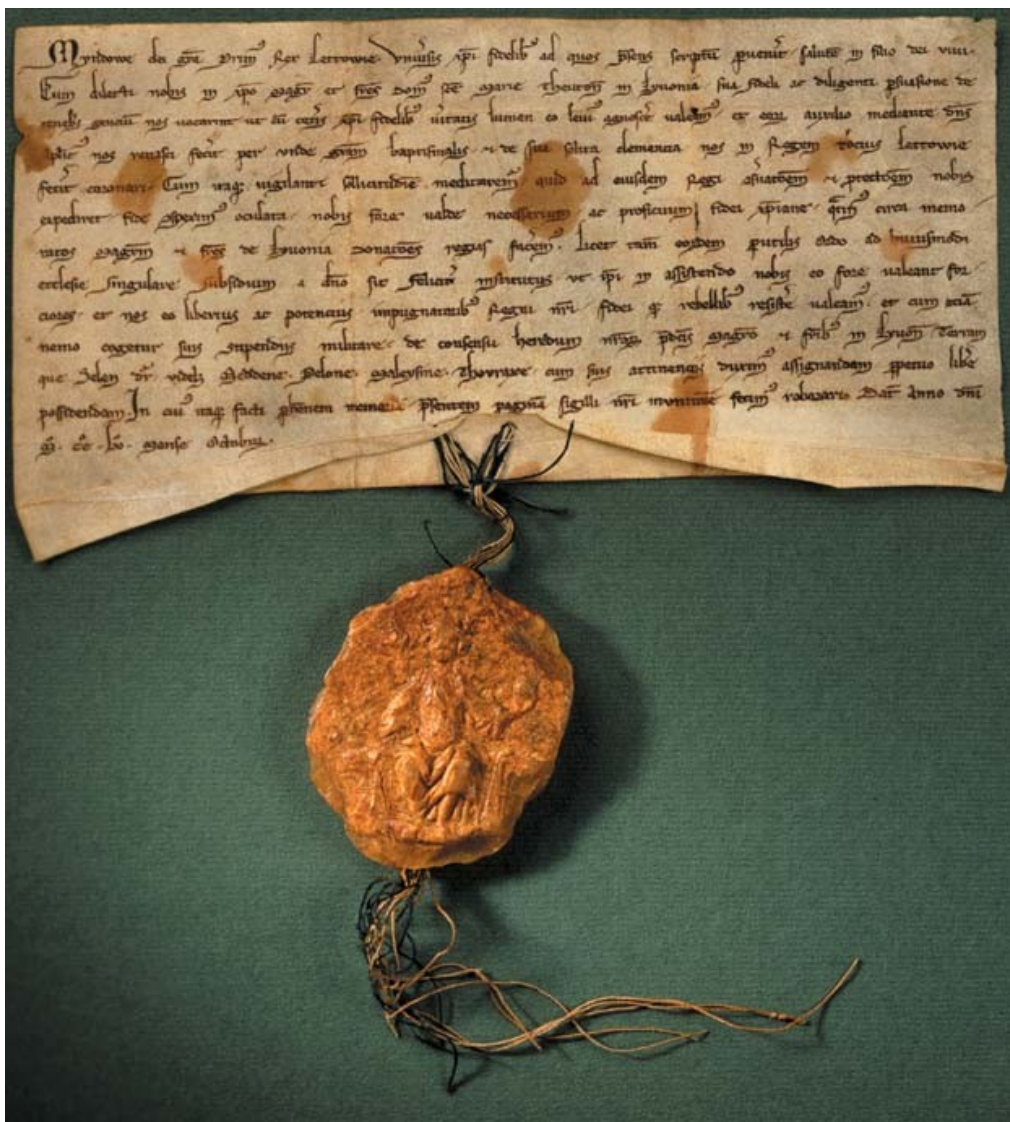 Myndowe dei gr̃e Primꝰ Rex Lettowie Vniũsis xp̃i fidelibꝰ ad quos p̃sens scriptũ puenit̾ salutẽ in filio dei viui.
Cum dilecti nobis in xp̃o Magr̃ et fr̃es domꝰ sc̃e Marie theuton̾ in Lyuonia sua fideli ac diligenti psuasione de
tenebris genciũ nos vocarint vt cũ cet̾is xp̃i fidelibꝰ v̾itatis lumen eo leuiꝰ agnosc̾e valeamꝰ et eorũ auxilio mediante dñs
nos renasci fecit per vnde gr̃am baptismalis et de sua solita clemencia nos in Regem tocius Lettowie
fecit coronari. Cum itaqꝫ vigilanti sollicitudine meditaremꝰ quid ad eiusdem Regni nobis
expediret fide oculata nobis fore valde necessarium ac proficuum fidei xp̃iane circa memo
ratos Magr̃m et fr̃es de Lyuonia donac̃oes regias facem̾. Licet tam̃ eordem ordo ad huiusmodi
ecclesie singulare subsidium a dño sit felicit̾ institutus vt ip̃i in assistendo nobis eo fore valeant for
ciores. et nos eo liberius ac potencius impugnatoribꝰ Regni nr̃i fidei qꝫ rebellibꝰ resist̾e valeamꝰ. et cum eciã
nemo cogetur suis stipendiis militare. de consensu heredum nr̃orꝫ p̃dc̃is Magr̃o et fr̃ibꝰ in Lyuoñ Terram
que Selen dr̃. videlꝫ Meddene. Pelone. Maleysine. Thovraxe. cum suis attinencijs duximꝰ assignandam ppetuo lib̾e
possidendam. In cuiꝰ itaqꝫ facti phẽnem memoriã p̃sentem paginã sigilli nr̃i munimine fecimꝰ roborari. Dat̃ Anno dñi
M̊. cc̊. lv̊. Mense Octobris.